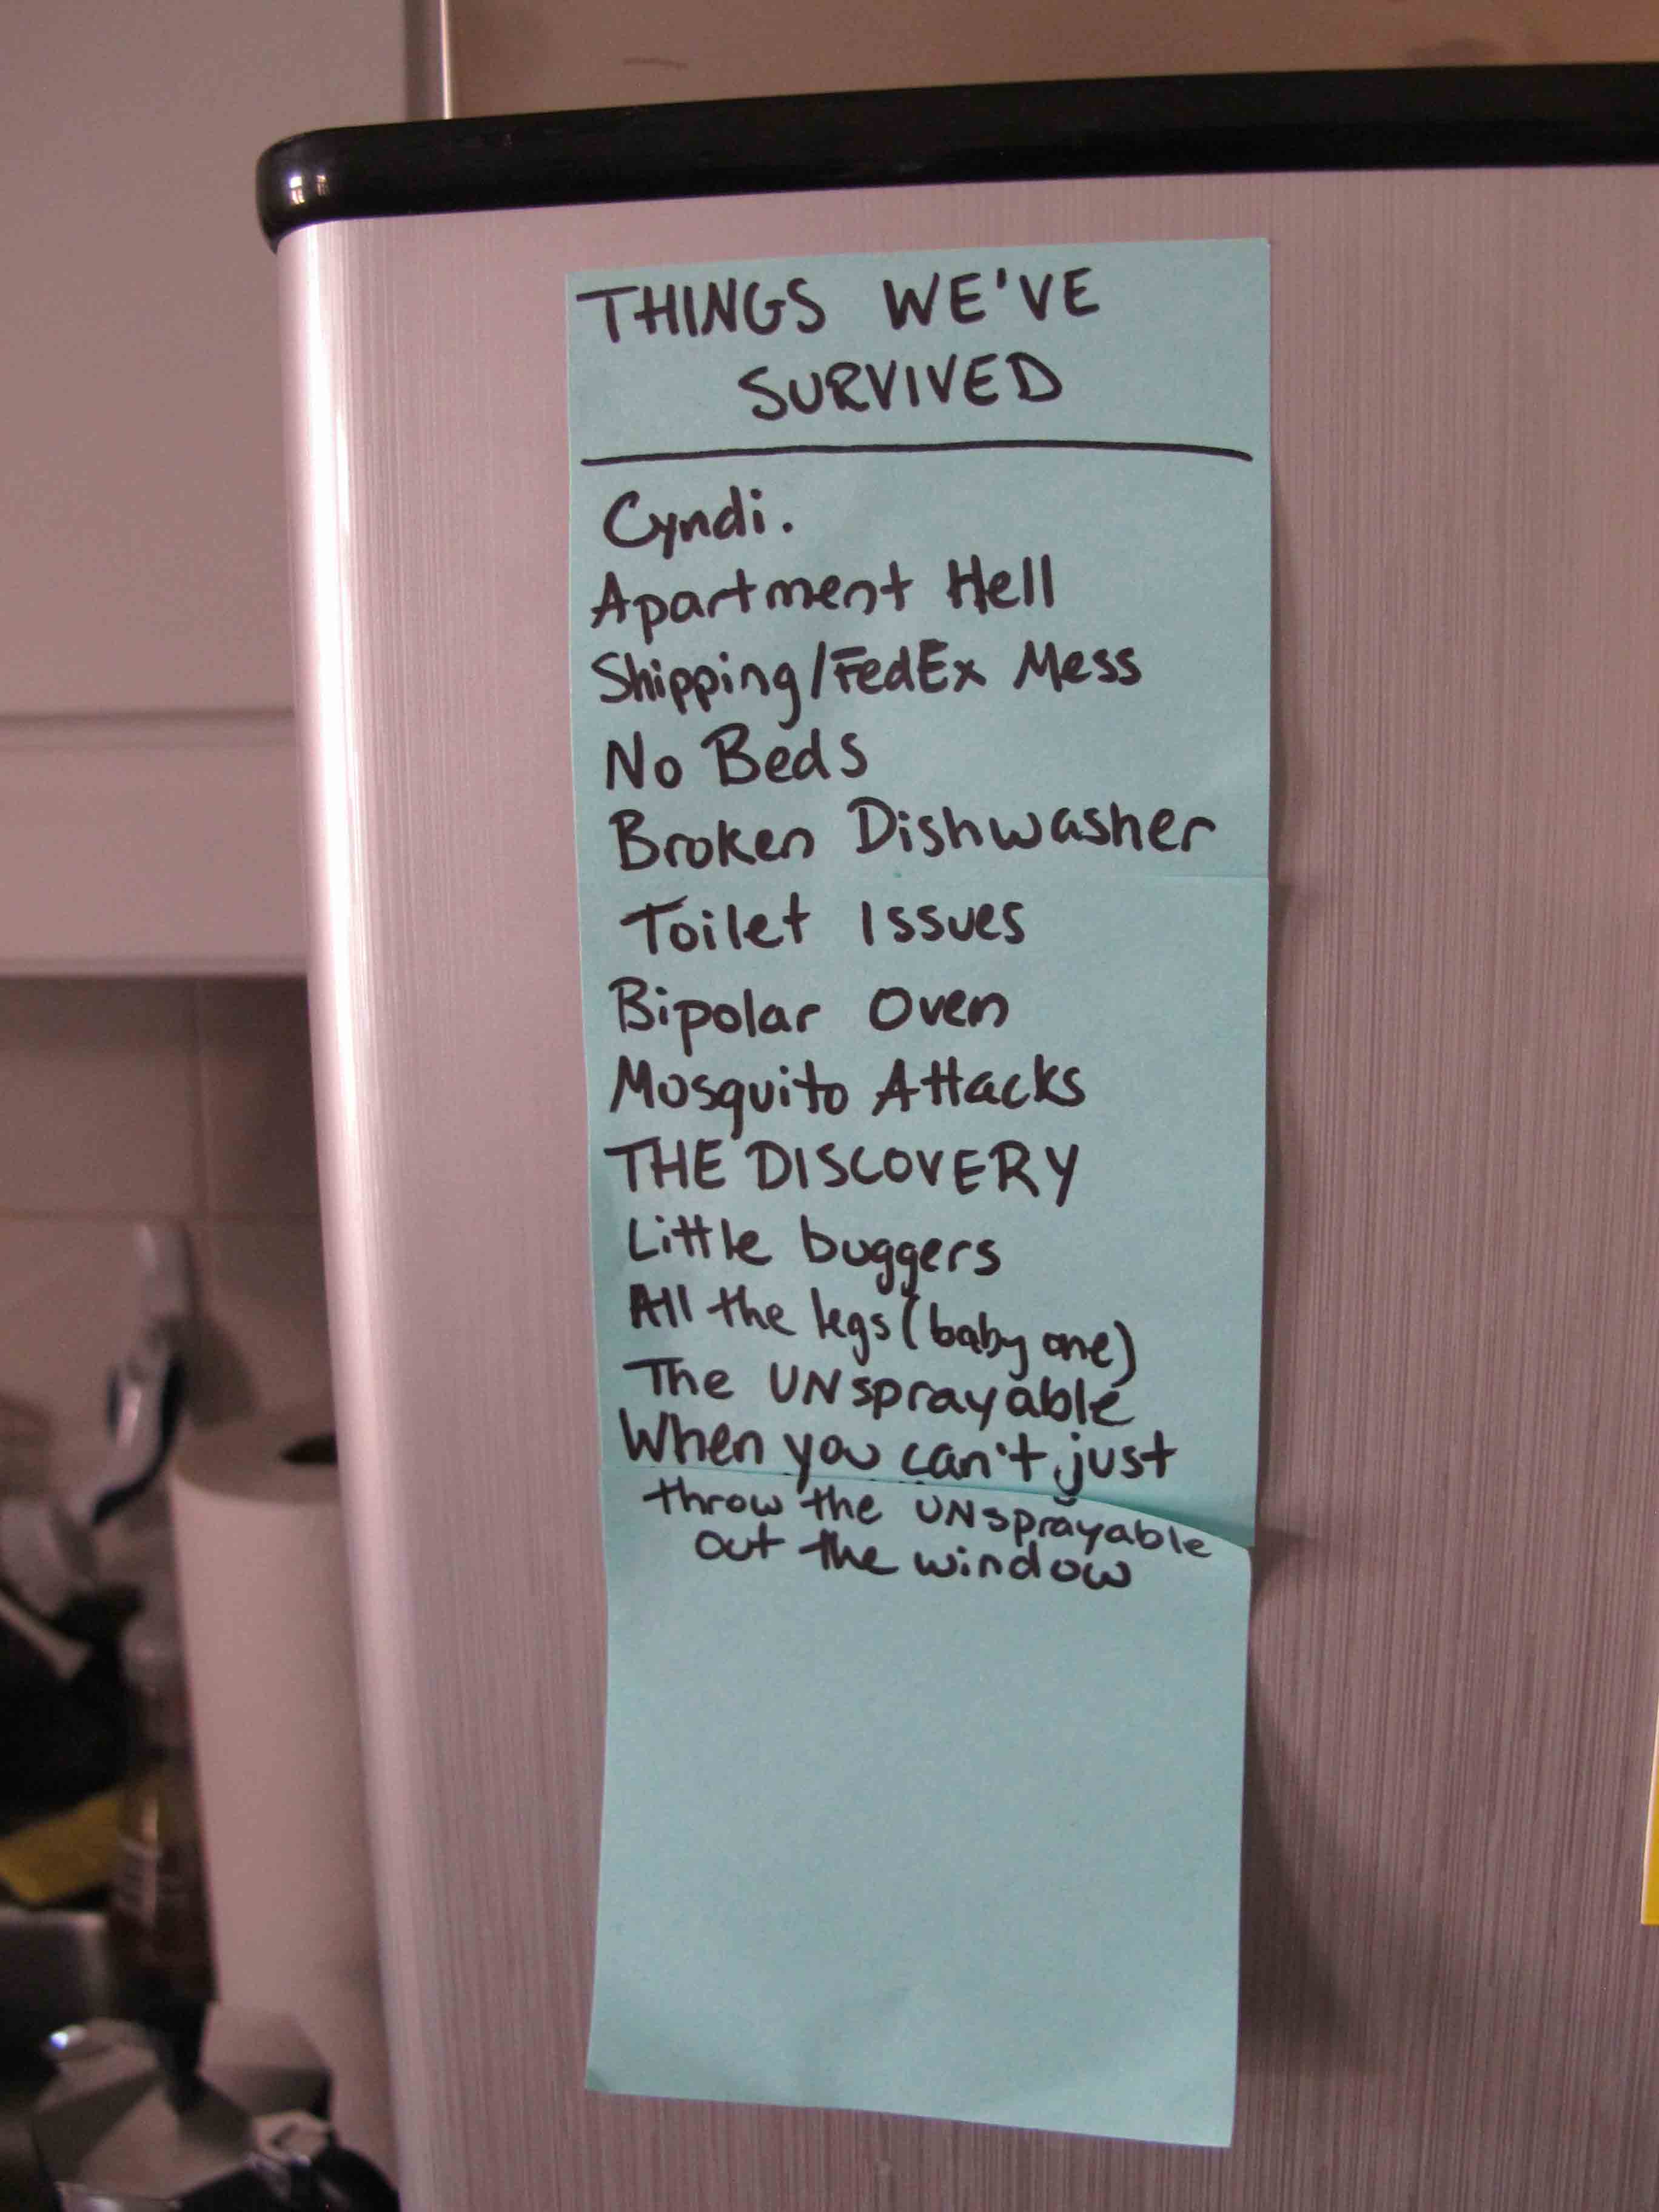 THINGS WE'VE
SURVIVED
Cyndi.
Apartment Hell
Shipping/FedEx Mess
No Beds
Broken Dishwasher
Toilet Issues
Bipolar Oven
Mosquito Attacks
THE DISCOVERY
Little buggers
All the legs (baby one)
The UNsprayable
When you can't just
throw the UNsprayable
out the window